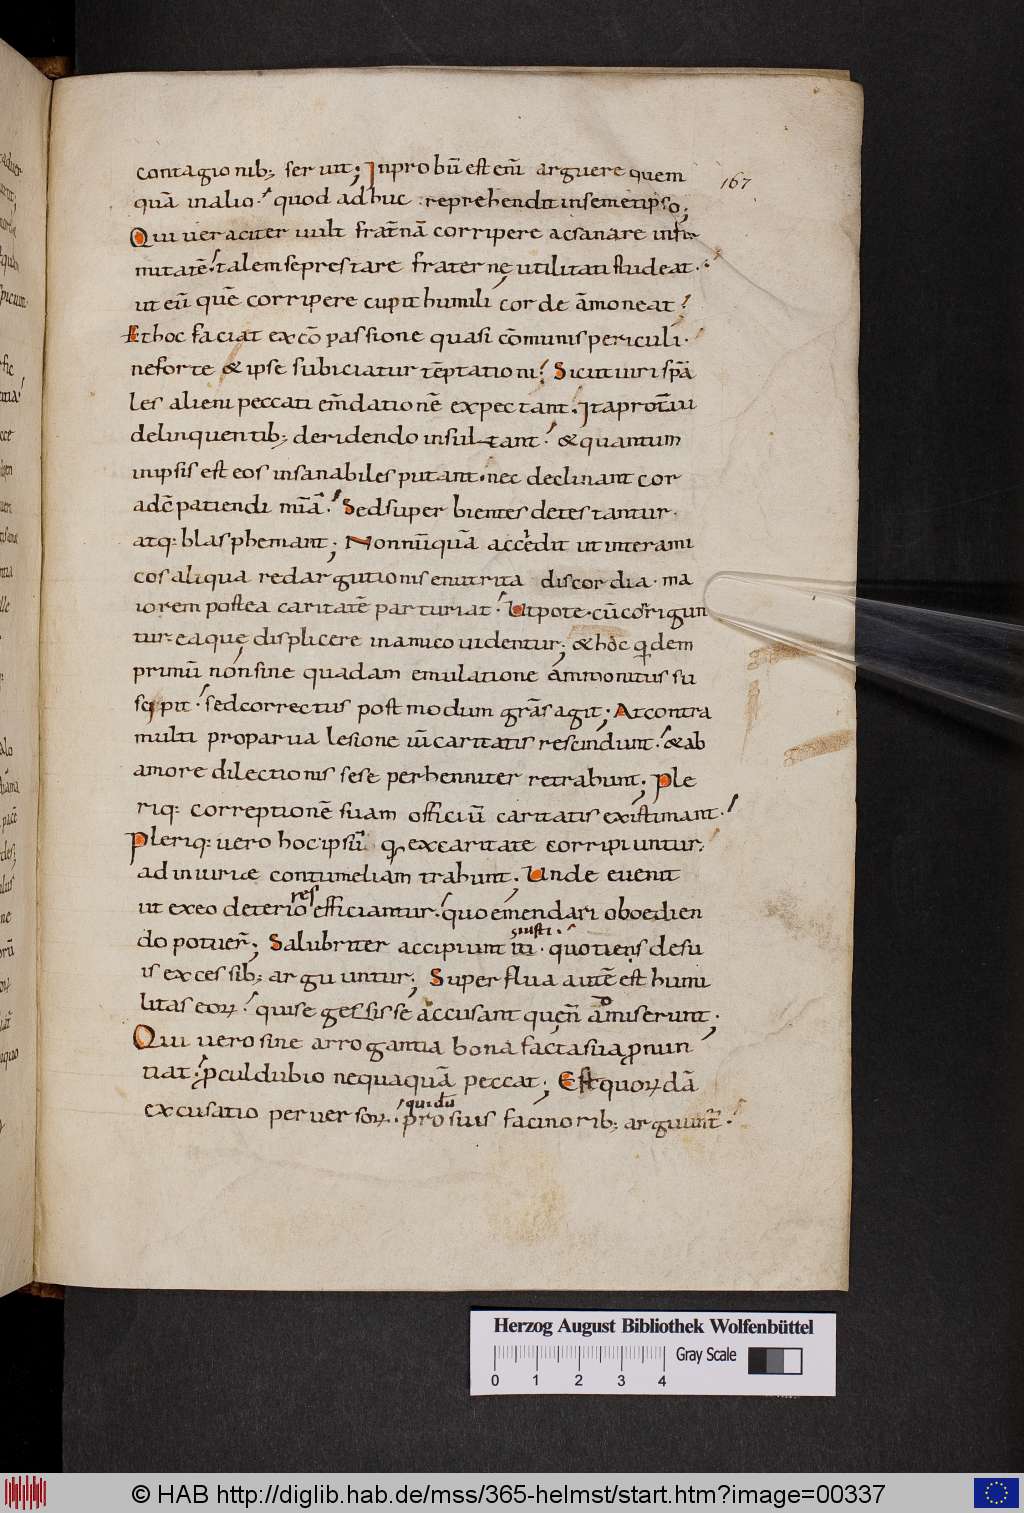 contagionib; seruit; Inprobū est eni̅ arguere quem
167
quā in alio. quod adhuc reprehendit in semetipso;
Qui ueraciter uult frat̅nā corripere ac sanare infir
mitatē. talem se prestare fraternę utilitati studeat.
ut eū quē corripere cupit humili corde āmoneat.
Et hoc faciat ex cō passione quasi cōmunis periculi.
ne forte & ipse subiciatur tēptationi. Sicut uiri sp̅a
les alieni peccati em̅dationē expectant. Ita prot̅ui
delinquentib; deridendo insultant. & quantum
in ipsis est eos insanabiles putant. nec declinant cor
ad cō patiendi mi̅a. Sed superbientes detestantur.
atq: blasphemant; Nonnūquā accedit ut inter ami
cos aliqua redargutionis enutrita discordia. ma
iorem postea caritatē parturiat. Utpote. cū corrigun
tur ea que displicere in amico uidentur; & hoc qidem
primū non sine quadam emulatione ammonitus su
scipit. sed correctus post modum grās agit; At contra
multi pro parua lesione iū caritatis rescindunt. & ab
amore dilectionis sese perhenniter retrahunt; Ple
riq: correptionē suam officiū caritatis existimant.
Pleriq: uero hoc ipsū q ex caritate corripiuntur.
ad iniuriæ contumeliam trahunt. Unde euenit
res
ut ex eo deterio efficiantur. quo emendari oboedien
iusti.
do potuer̅; Salubriter accipiunt iti. quotiens de su
is excessib; arguuntur; Superflua autē est humi
litas eoꝝ. qui se gessisse accusant quen̅ amiserunt;
Qui uero sine arrogantia bona facta sua ꝓnun
tiat. ꝓculdubio nequaquā peccat; Est quoꝝdā
quidū
excusatio peruersoꝝ. pro suis facinorib; arguunt̅.
Herzog August Bibliothek Wolfenbüttel
Gray Scale
0 1 2 3 4
© HAB http://diglib.hab.de/mss/365-helmst/start.htm?image=00337